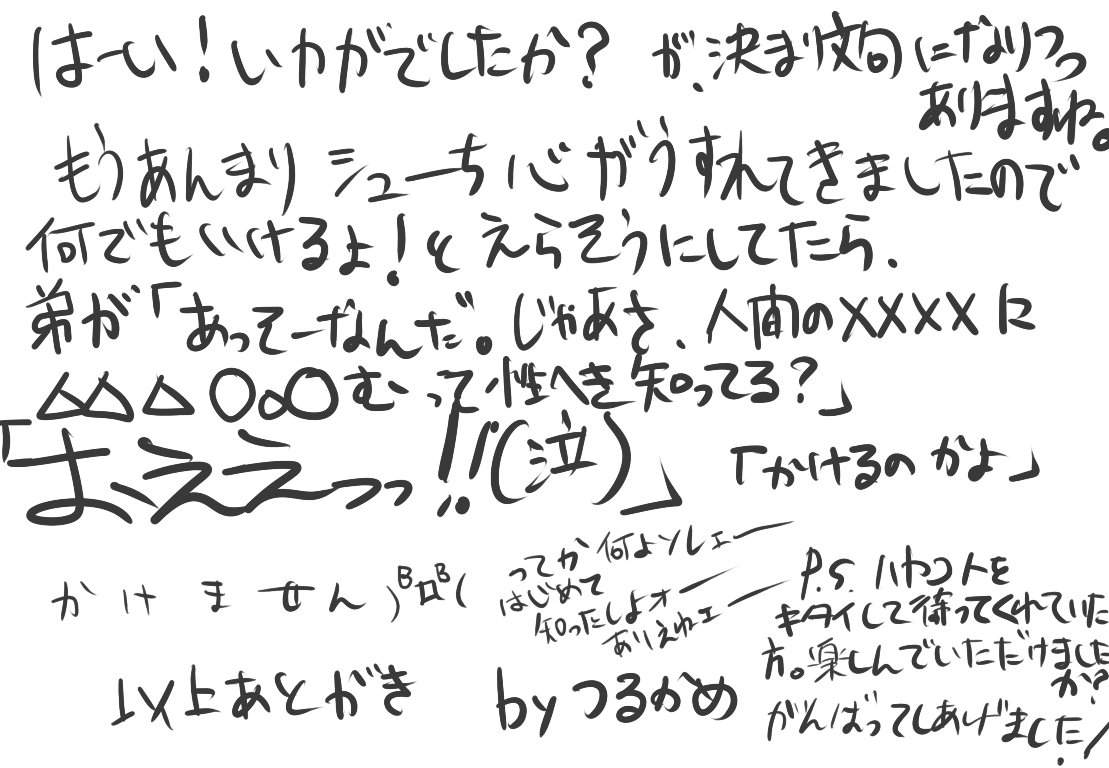 はーい！いかがでしたか？ が、決まり文句になりつつ
ありますね。
もうあんまりシューち心がうすれてきましたので
何でもいけるよ！とえらそうにしてたら、
弟が「あってーなんだ。じゃあさ、人間のXXXXに
△△△○○○むって性へき知ってる？」
「おええーっっ!!(泣)」 「かけるのかよ」
かけません
ってか何よソレェー
はじめて
知ったしよォー
ありえねェー
P.S. ハヤコトを
キタイして待ってくれていた
方。楽しんでいただけました
か？
がんばってしあげました！
以上あとがき by つるかめ